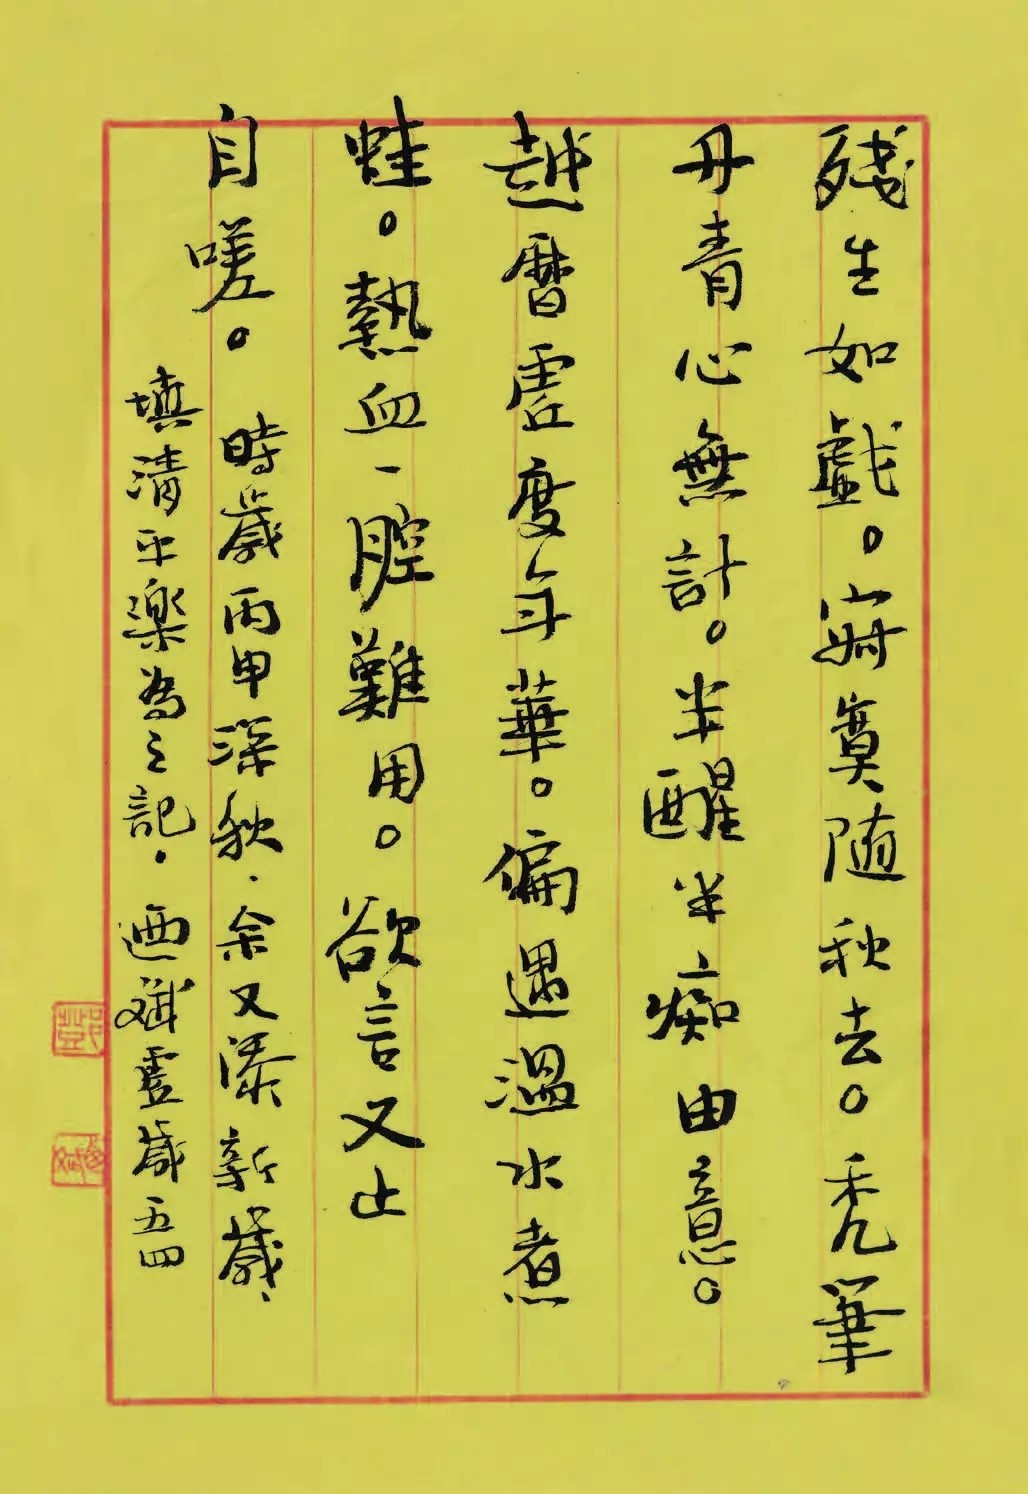 殘生如戲。寂寞随秋去。禿筆
丹青心無計。半醒半痴由意。
越曆虛度年華。偏遇溫水煮
蛙。熱血一腔難用。欲言又止
自嗟。時歲丙申深秋、余又添新歲、
填清平樂為之記。迺斌虛歲五四